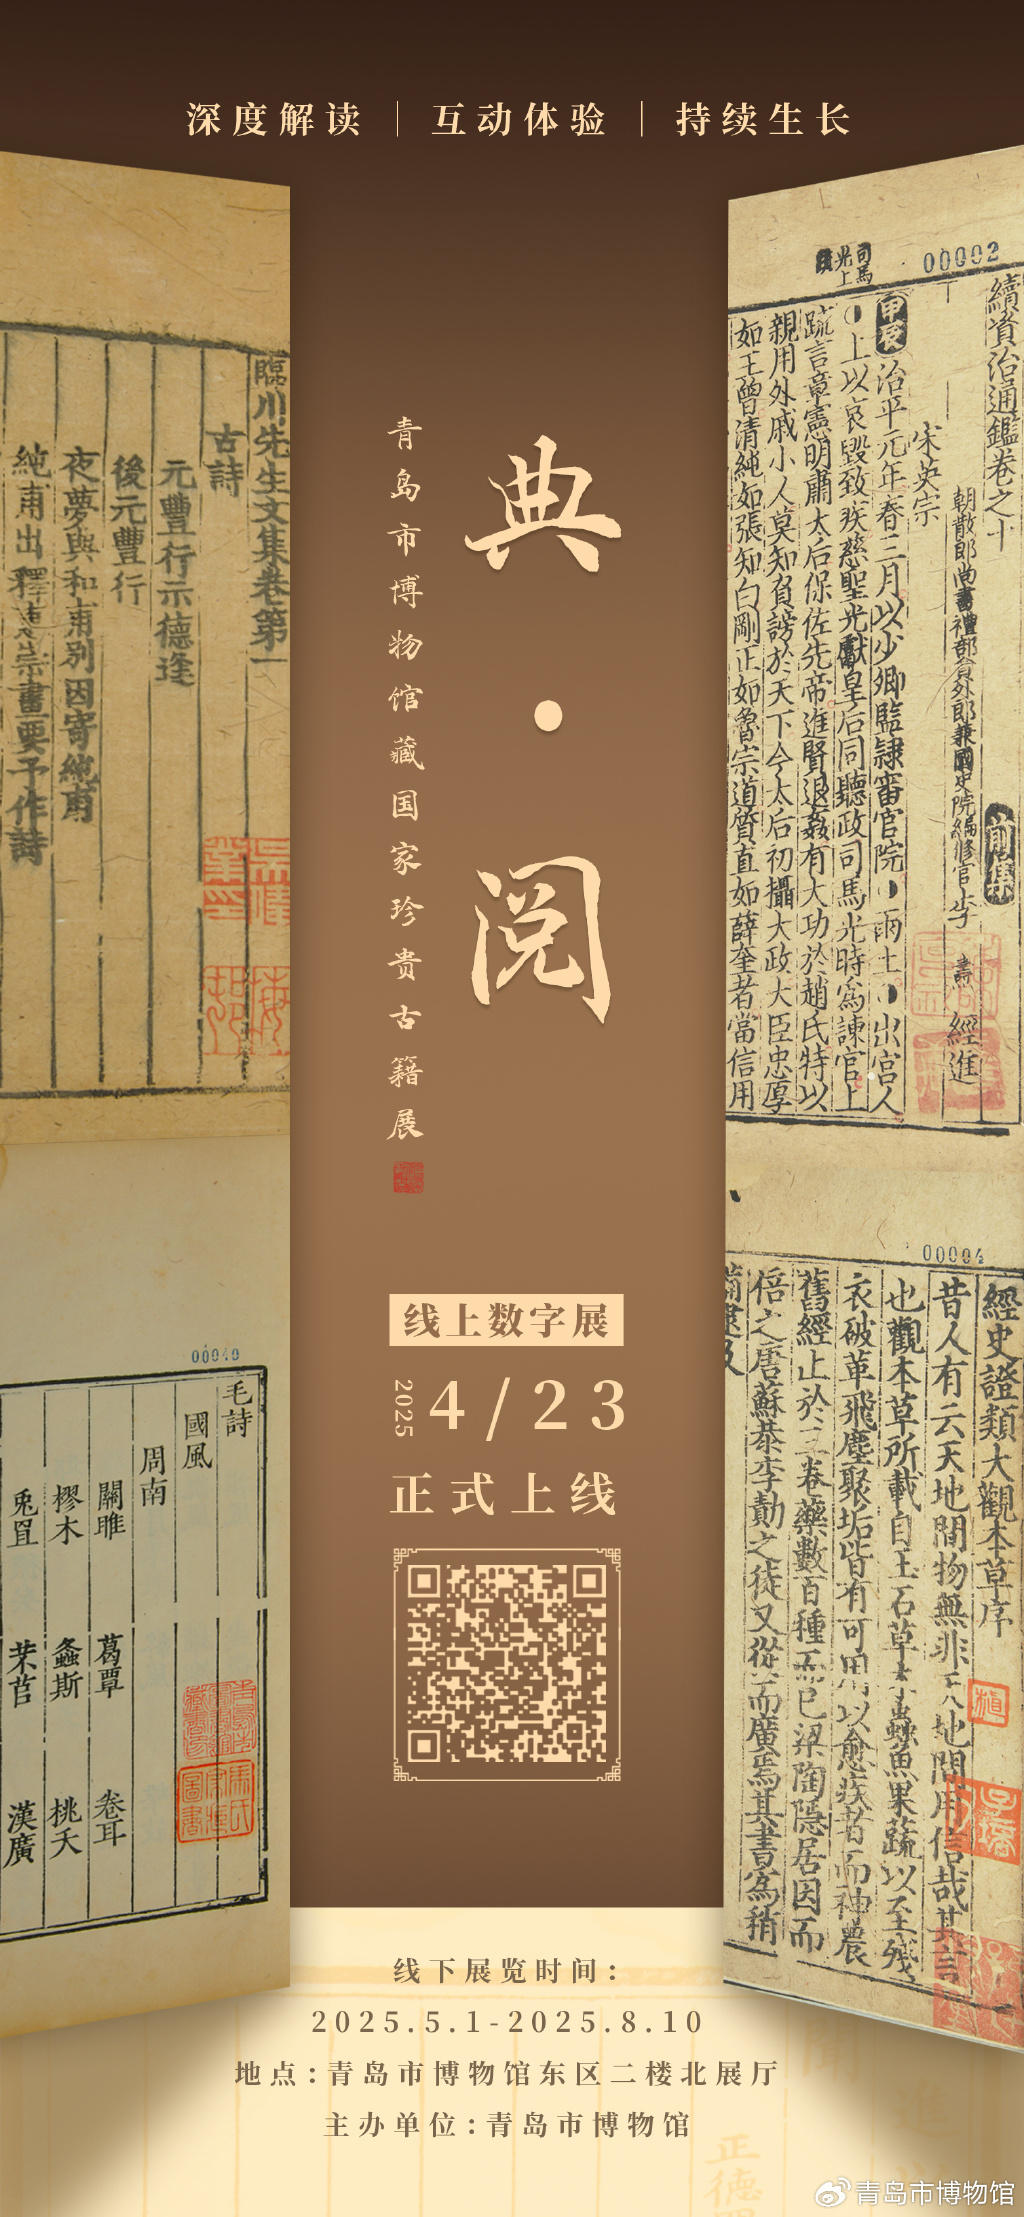 深度解读｜互动体验｜持续生长
典·阅
青岛市博物馆藏国家珍贵古籍展
线上数字展
2025
4/23
正式上线
线下展览时间:
2025.5.1-2025.8.10
地点:青岛市博物馆东区二楼北展厅
主办单位:青岛市博物馆
臨川先生文集卷第一
古詩
元豐行示德逢
後元豐行
夜夢與和甫别因寄純甫
純甫出釋惠崇畫要予作詩
00040
毛詩
國風
周南
關雎
葛覃
卷耳
樛木
螽斯
桃夭
兎罝
芣苢
漢廣
00002
司馬
光上
續資治通鑑卷之十
前集
朝散郎尚書禮部員外郎兼國史院編修官李
燾
經進
宋英宗
甲辰
治平元年春三月以少卿監隷審官院
雨土
出宫人
上以哀毁致疾慈聖光獻皇后同聽政司馬光時爲諫官上
疏言章憲明肅太后保佐先帝進賢退姦有大功於趙氏特以
親用外戚小人莫知負謗於天下今太后初攝大政大臣忠厚
如王曾清純如張知白剛正如魯宗道質直如薛奎者當信用
00004
經史證類大觀本草序
昔人有云天地間物無非天地間用信哉其言
也觀本草所載自玉石草木蟲魚果蔬以至殘
衣破革飛塵聚垢皆有可用以愈疾者而神農
舊經止於三卷藥數百種而已梁陶隱居因而
倍之唐蘇恭李勣之徒又從而廣焉其書爲稍
正德
青岛市博物馆